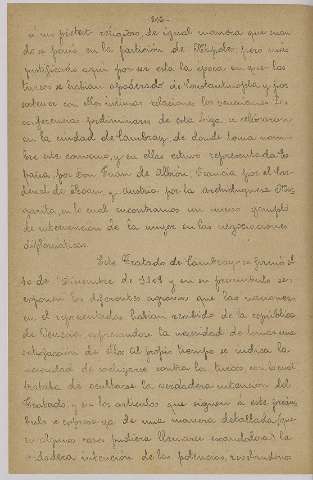 - 212 -
á un pretext religioso, de igual manera que cuan
do se pensó en la partición de Trípoli, pero más
justificado aquí por ser esta la época en que los
turcos se habían apoderado de Constantinopla y por
sostener con ellos íntimas relaciones los venecianos. Las
conferencias preliminares de esta Liga se celebraron
en la ciudad de Cambray, de donde toma nom-
bre este convenio, y en ellas estuvo representada Es
paña por Don Juan de Albión, Francia por el Car
denal de Roan y Austria por la archiduquesa Mar
garita, en lo cual encontramos un nuevo ejemplo
de intervención de la mujer en las negociaciones
diplomáticas.
Este Tratado de Cambray se firmó el
10 de Diciembre de 1508 y en su preámbulo se
exponen los diferentes agravios que las naciones
en él representadas habían recibido de la república
de Venecia, expresándose la necesidad de tomar una
satisfacción de ellos. Al propio tiempo se indica la
necesidad de coaligarse contra los turcos, con lo cual
trataba de ocultarse la verdadera intención del
Tratado, y en los artículos que siguen á este preám
bulo se expresa ya de una manera detallada (que
en algunos casos pudiera llamarse escandalosa) la
verdadera intención de las potencias,